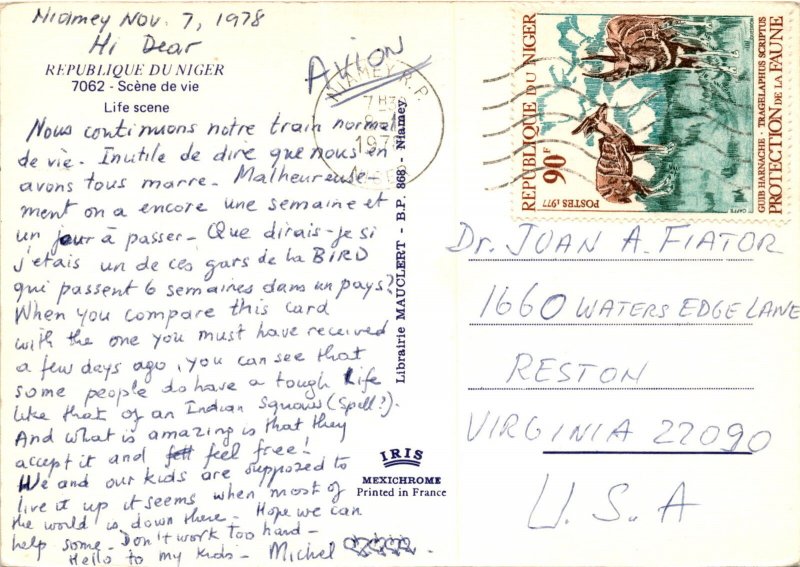 Niamey Nov. 7, 1978
Hi Dear
REPUBLIQUE DU NIGER
7062 - Scène de vie
Life scene
Nous continuons notre train normal
de vie. Inutile de dire que nous en
avons tous marre. Malheureuse
ment on a encore une semaine et
un jour à passer - Que dirais-je si
j'etais un de ces gars de la BIRD
qui passent 6 semaines dans un pays?
When you compare this card
with the one you must have received
a few days ago, you can see that
some people do have a tough life
like that of an Indian Squaws (Spell?).
And what is amazing is that they
accept it and feel free!
We and our kids are supposed to
live it up it seems when most of
the world is down there - Hope we can
help some - Don't work too hard -
Hello to my kids - Michel
AVION
NIAMEY R.P.
1978
NIGER
Librairie MAUCLERT - B.P. 868 - Niamey
IRIS
MEXICHROME
Printed in France
REPUBLIQUE DU NIGER
90F
POSTES 1977
GUIB HARNACHE - TRAGELAPHUS SCRIPTUS
PROTECTION DE LA FAUNE
Dr. JUAN A. FIATOR
1660 WATERS EDGE LANE
RESTON
VIRGINIA 22090
U.S.A